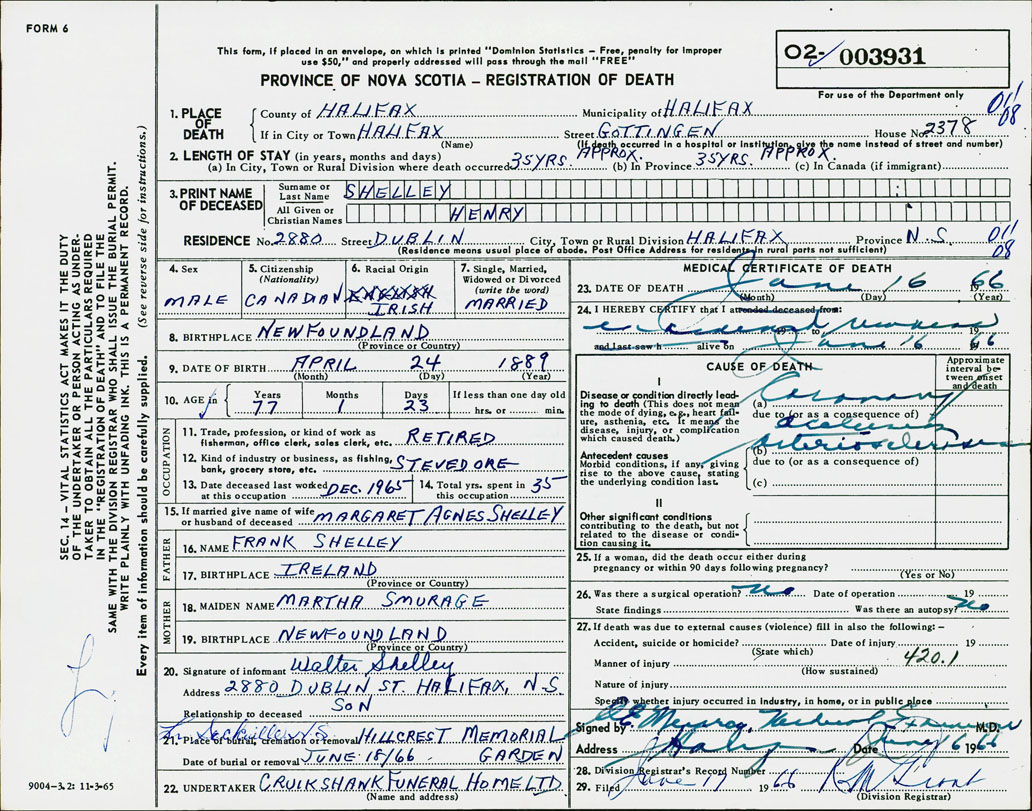 FORM 6
This form, if placed in an envelope, on which is printed "Dominion Statistics – Free, penalty for improper
use $50," and properly addressed will pass through the mail "FREE"
PROVINCE OF NOVA SCOTIA – REGISTRATION OF DEATH
02- 003931
For use of the Department only
1. PLACE OF DEATH
County of HALIFAX Municipality of HALIFAX 01/08
If in City or Town HALIFAX Street GOTTINGEN House No. 2378
(Name) (If death occurred in a hospital or institution, give the name instead of street and number)
2. LENGTH OF STAY (in years, months and days)
(a) In City, Town or Rural Division where death occurred 35 YRS. APPROX. (b) In Province 35 YRS. APPROX. (c) In Canada (if immigrant)
3. PRINT NAME OF DECEASED
Surname or Last Name SHELLEY
All Given or Christian Names HENRY
RESIDENCE No. 2880 Street DUBLIN City, Town or Rural Division HALIFAX Province N.S. 01/08
(Residence means usual place of abode. Post Office Address for residents in rural parts not sufficient)
4. Sex
MALE
5. Citizenship (Nationality)
CANADIAN
6. Racial Origin
IRISH
7. Single, Married, Widowed or Divorced (write the word)
MARRIED
8. BIRTHPLACE NEWFOUNDLAND
(Province or Country)
9. DATE OF BIRTH APRIL 24 1889
(Month) (Day) (Year)
10. AGE in Years Months Days If less than one day old
77 1 23 hrs. or min.
OCCUPATION
11. Trade, profession, or kind of work as fisherman, office clerk, sales clerk, etc. RETIRED
12. Kind of industry or business, as fishing, bank, grocery store, etc. STEVEDORE
13. Date deceased last worked at this occupation DEC. 1965
14. Total yrs. spent in this occupation 35
15. If married give name of wife or husband of deceased MARGARET AGNES SHELLEY
FATHER
16. NAME FRANK SHELLEY
17. BIRTHPLACE IRELAND
(Province or Country)
MOTHER
18. MAIDEN NAME MARTHA SMURAGE
19. BIRTHPLACE NEWFOUNDLAND
(Province or Country)
20. Signature of informant Walter Shelley
Address 2880 DUBLIN ST. HALIFAX, N.S.
Relationship to deceased SON
Sackville N.S.
21. Place of burial, cremation or removal HILLCREST MEMORIAL
Date of burial or removal JUNE 18/66 GARDEN
22. UNDERTAKER CRUIKSHANK FUNERAL HOME LTD.
(Name and address)
MEDICAL CERTIFICATE OF DEATH
23. DATE OF DEATH June 16 66
(Month) (Day) (Year)
24. I HEREBY CERTIFY that I attended deceased from:
19 to 19
and last saw h alive on June 16 1966
CAUSE OF DEATH
Approximate interval between onset and death
I
Disease or condition directly leading to death (This does not mean the mode of dying, e.g., heart failure, asthenia, etc. It means the disease, injury, or complication which caused death.)
(a) Coronary
due to (or as a consequence of)
occlusion
Antecedent causes
Morbid conditions, if any, giving rise to the above cause, stating the underlying condition last.
(b) arteriosclerosis
due to (or as a consequence of)
(c)
II
Other significant conditions
contributing to the death, but not related to the disease or condition causing it.
25. If a woman, did the death occur either during pregnancy or within 90 days following pregnancy?
(Yes or No)
26. Was there a surgical operation? No Date of operation 19
State findings Was there an autopsy? No
27. If death was due to external causes (violence) fill in also the following: –
Accident, suicide or homicide? Date of injury 19
(State which)
Manner of injury 420.1
(How sustained)
Nature of injury
Specify whether injury occurred in industry, in home, or in public place
Signed by Medical Examiner M.D.
Address Date June 16 1966
28. Division Registrar's Record Number
29. Filed June 17 1966
(Division Registrar)
SEC. 14 – VITAL STATISTICS ACT MAKES IT THE DUTY
OF THE UNDERTAKER OR PERSON ACTING AS UNDER-
TAKER TO OBTAIN ALL THE PARTICULARS REQUIRED
IN THE "REGISTRATION OF DEATH" AND TO FILE THE
SAME WITH THE DIVISION REGISTRAR WHO SHALL ISSUE THE BURIAL PERMIT.
WRITE PLAINLY WITH UNFADING INK. THIS IS A PERMANENT RECORD.
Every item of information should be carefully supplied. (See reverse side for instructions.)
9004–3.2: 11-3-65